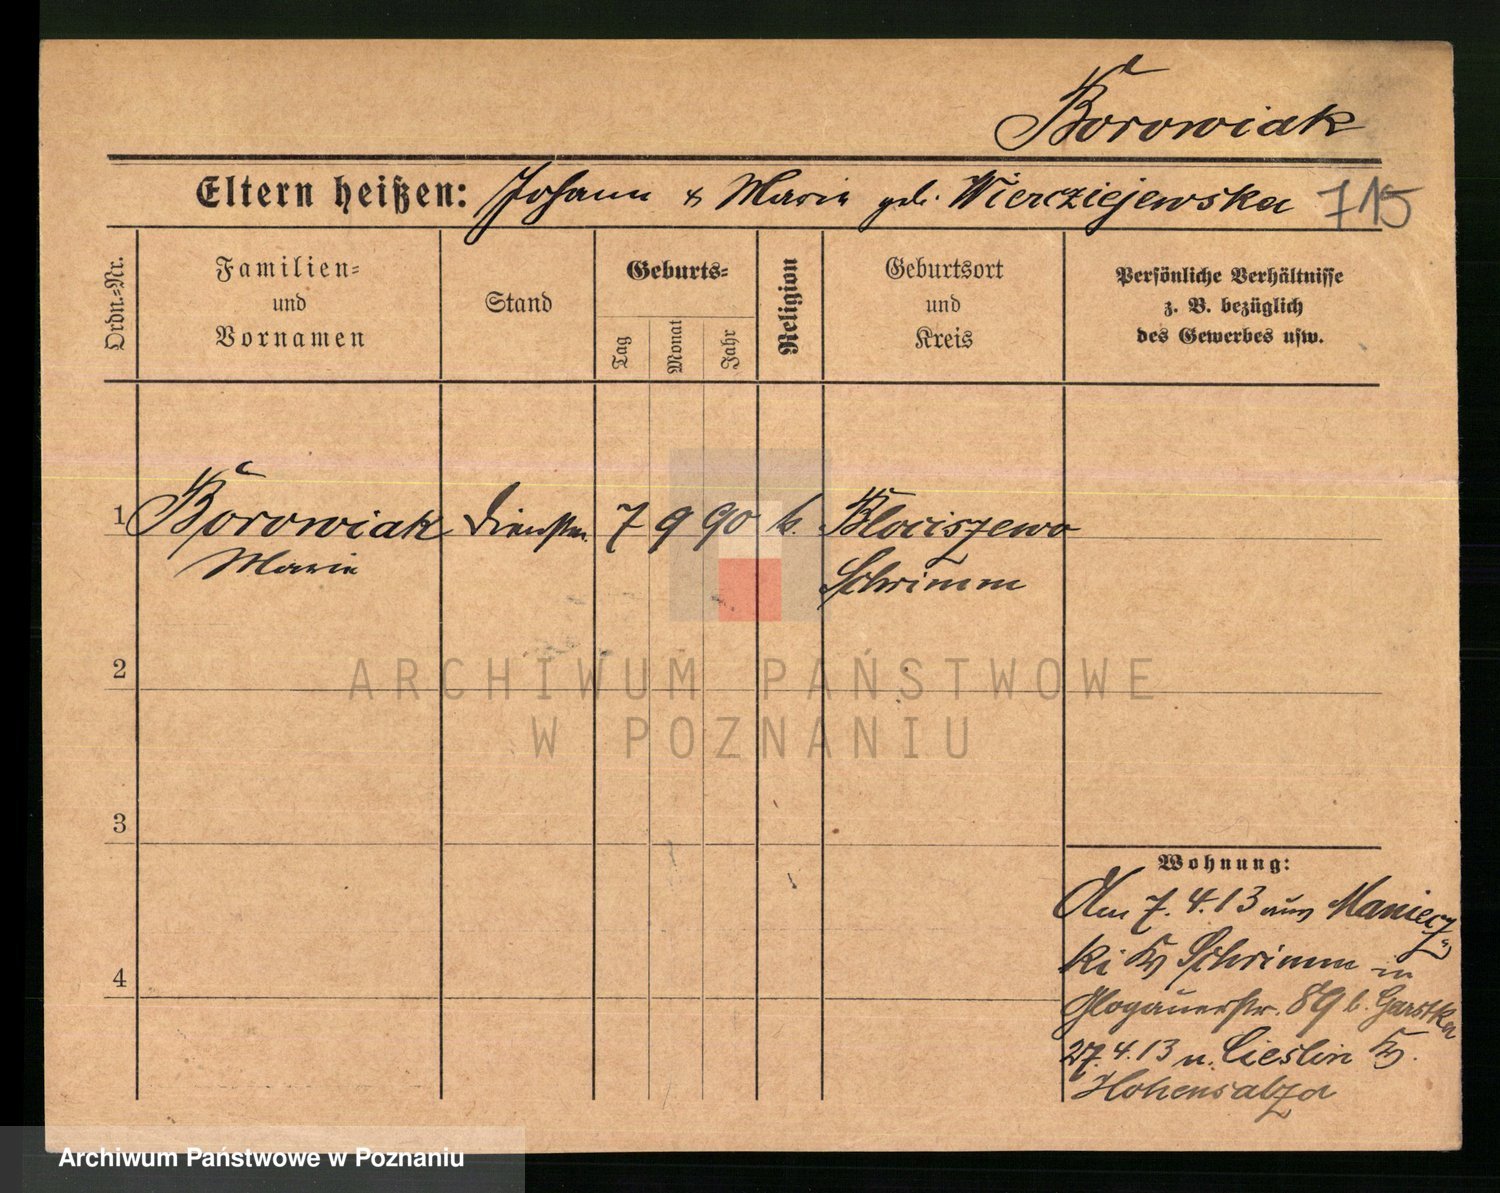 Borowiak
Eltern heißen: Johann & Marie geb. Wiercziejewska 715
Ordn.-Nr.
Familien-
und
Vornamen
Stand
Geburts-
Tag
Monat
Jahr
Religion
Geburtsort
und
Kreis
Persönliche Verhältnisse
z. B. bezüglich
des Gewerbes usw.
1 Borowiak Dienstm. 7 9 90 k. Blociszewo
Marie Schrimm
2
ARCHIWUM PAŃSTWOWE
W POZNANIU
3
Wohnung:
Am 7.4.13 aus Maniecz=
4
ki Kr Schrimm in
Glogauerstr. 89 b. Garstka
27.4.13 n. Cieslin Kr.
Hohensalza
Archiwum Państwowe w Poznaniu